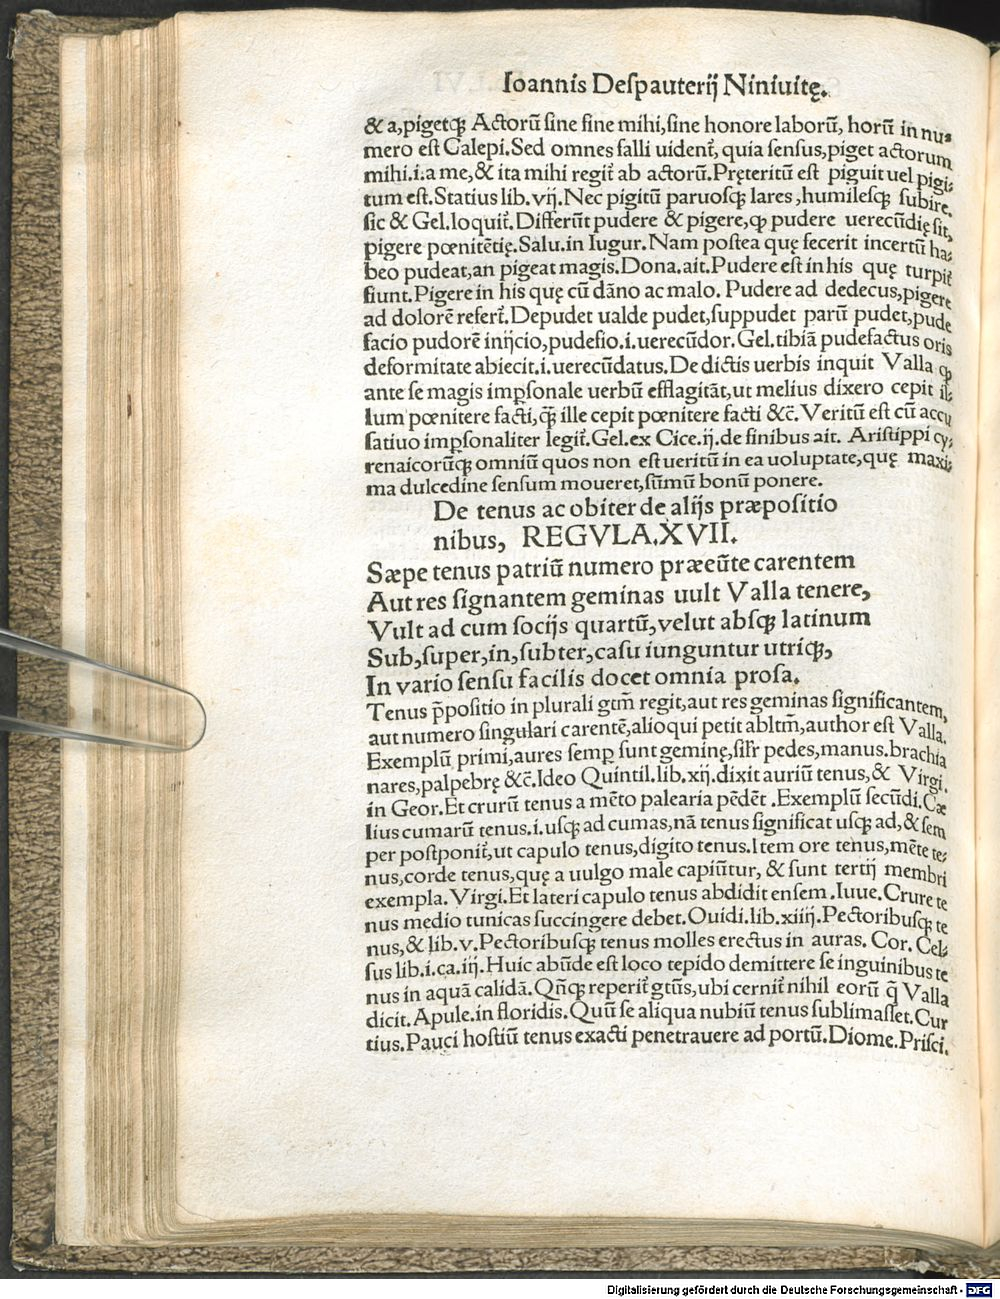 Ioannis Deſpauterij Niniuitę.
& a,pigetqꝫ Actorū ſine fine mihi,ſine honore laborū, horū in nu⸗
mero eſt Calepi.Sed omnes falli uident᷑, quia ſenſus,piget actorum
mihi.i.a me,& ita mihi regit᷑ ab actorū.Pręteritū eſt piguit uel pigi⸗
tum eſt.Statius lib.vij.Nec pigitū paruoſqꝫ lares,humileſqꝫ ſubire.
ſic & Gel.loquit᷑.Differūt pudere & pigere,ꝙ pudere uerecūdię ſit,
pigere pœnitētię.Salu.in Iugur.Nam poſtea quę fecerit incertū ha⸗
beo pudeat,an pigeat magis.Dona.ait.Pudere eſt in his quę turpit᷑
fiunt.Pigere in his quę cū dāno ac malo. Pudere ad dedecus,pigere
ad dolorē refert᷑.Depudet ualde pudet,ſuppudet parū pudet,pude
facio pudorē inijcio,pudefio.i.uerecūdor.Gel.tibiā pudefactus oris
deformitate abiecit.i.uerecūdatus.De dictis uerbis inquit Valla ꝙ
ante ſe magis imꝑſonale uerbū efflagitāt,ut melius dixero cepit il⸗
lum pœnitere facti,q̄ꝫ ille cepit pœnitere facti &c̄.Veritū eſt cū accu
ſatiuo imꝑſonaliter legit᷑.Gel.ex Cice.ij.de finibus ait. Ariſtippi cy⸗
renaicorūqꝫ omniū quos non eſt ueritū in ea uoluptate,quę maxi⸗
ma dulcedine ſenſum moueret,ſūmū bonū ponere.
De tenus ac obiter de alijs præpoſitio
nibus, REGVLA.XVII.
Sæpe tenus patriū numero præeūte carentem
Aut res ſignantem geminas uult Valla tenere,
Vult ad cum ſocijs quartū,velut abſqꝫ latinum
Sub,ſuper,in,ſubter,caſu iunguntur utriqꝫ,
In vario ſenſu facilis docet omnia proſa.
Tenus p̄poſitio in plurali gtm̄ regit,aut res geminas ſignificantem,
aut numero ſingulari carentē,alioqui petit abltm̄,author eſt Valla.
Exemplū primi,aures ſemꝑ ſunt geminę,ſil᷑r pedes,manus.brachia
nares,palpebrę &c̄.Ideo Quintil.lib.xij.dixit auriū tenus,& Virgi.
in Geor.Et crurū tenus a mēto palearia pēdēt .Exemplū ſecūdi.Cæ
lius cumarū tenus.i.uſqꝫ ad cumas,nā tenus ſignificat uſqꝫ ad,& ſem
per poſtponit᷑,ut capulo tenus,digito tenus.Item ore tenus,mēte te⸗
nus,corde tenus,quę a uulgo male capiūtur, & ſunt tertij membri
exempla.Virgi.Et lateri capulo tenus abdidit enſem.Iuue.Crure te
nus medio tunicas ſuccingere debet.Ouidi.lib.xiiij.Pectoribuſqꝫ te
nus,& lib.v.Pectoribuſqꝫ tenus molles erectus in auras. Cor. Cel⸗
ſus lib.i.ca.iij.Huic abūde eſt loco tepido demittere ſe inguinibus te
nus in aquā calidā.Qn̄qꝫ reperit᷑ gtūs,ubi cernit᷑ nihil eorū q̄ Valla
dicit.Apule.in floridis.Quū ſe aliqua nubiū tenus ſublimaſſet.Cur
tius.Pauci hoſtiū tenus exacti penetrauere ad portū.Diome.Priſci.
Digitalisierung gefördert durch die Deutsche Forschungsgemeinschaft - DFG